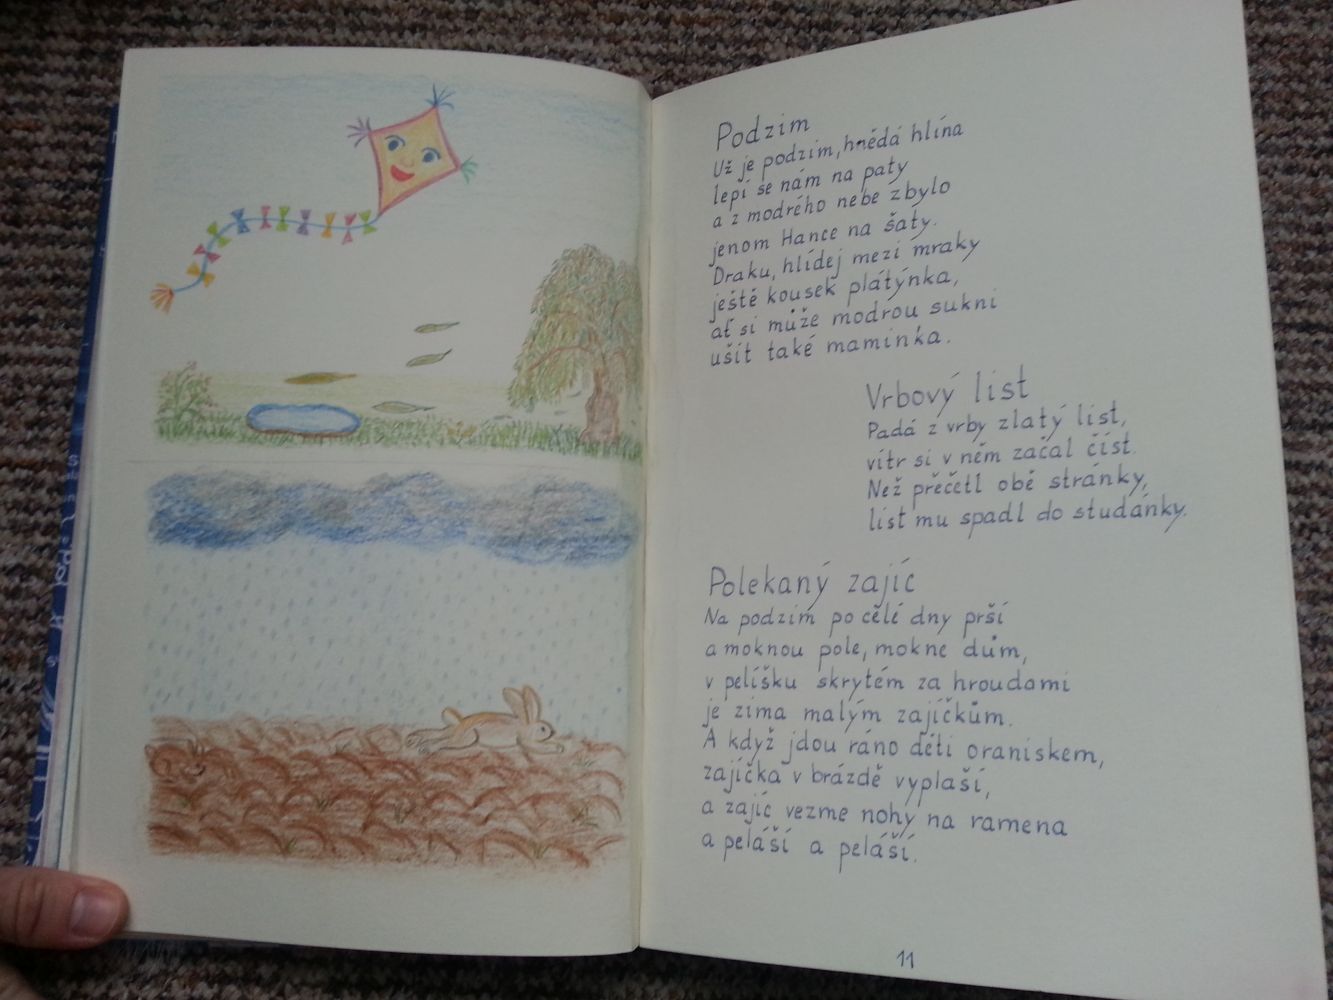 Podzim
Už je podzim, hnědá hlína
lepí se nám na paty
a z modrého nebe zbylo
jenom Hance na šaty.
Draku, hlídej mezi mraky
ještě kousek plátýnka,
ať si může modrou sukni
ušít také maminka.
Vrbový list
Padá z vrby zlatý list,
vítr si v něm začal číst.
Než přečetl obě stránky,
list mu spadl do studánky.
Polekaný zajíc
Na podzim po celé dny prší
a moknou pole, mokne dům,
v pelíšku skrytém za hroudami
je zima malým zajíčkům.
A když jdou ráno děti oraniskem,
zajíčka v brázdě vyplaší,
a zajíc vezme nohy na ramena
a peláší a peláší.
11